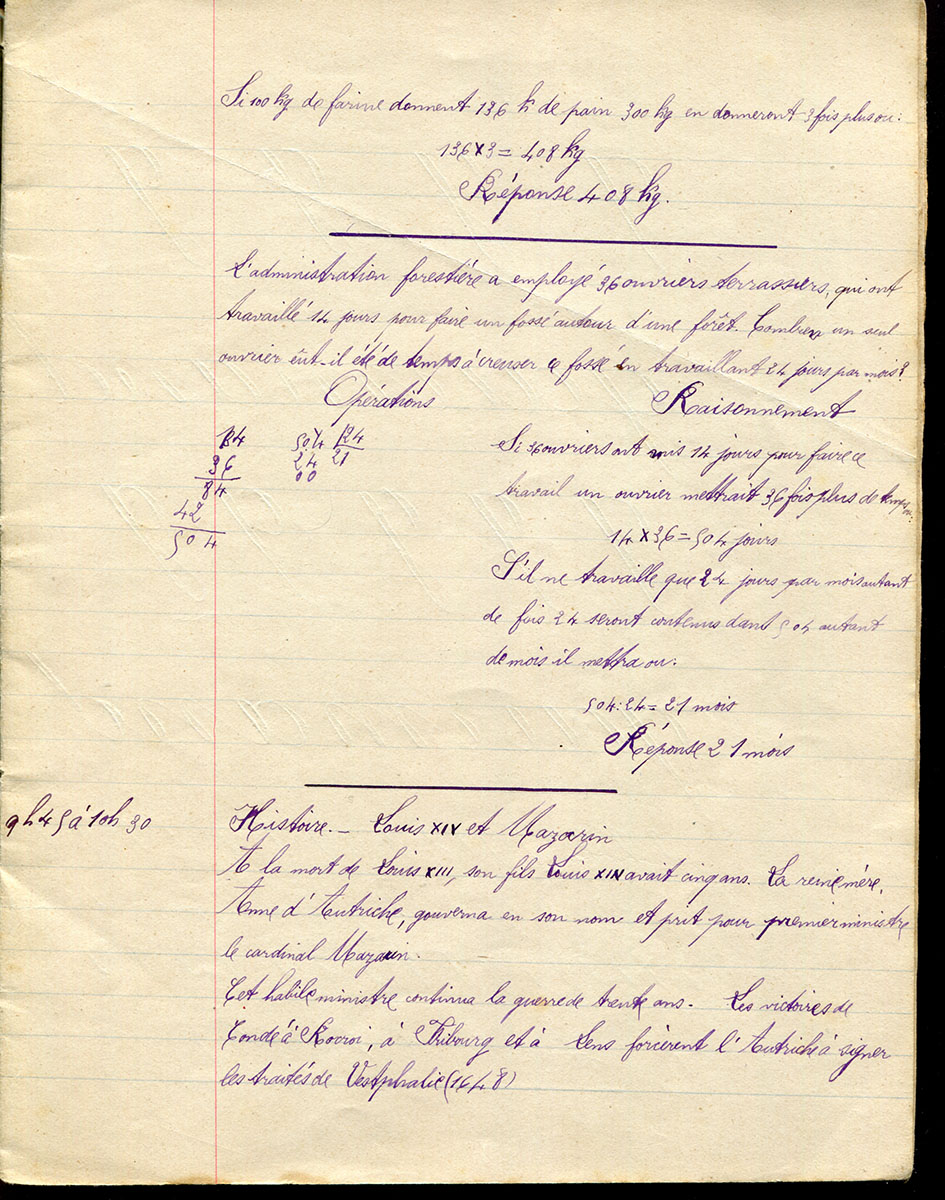 Si 100 kg de farine donnent 136 k de pain 300 kg en donneront 3 fois plus ou:
136 x 3 = 408 kg
Réponse 408 kg.
L'administration forestière a employé 36 ouvriers terrassiers, qui ont
travaillé 14 jours pour faire un fossé autour d'une forêt. Combien un seul
ouvrier eût-il été de temps à creuser ce fossé en travaillant 24 jours par mois?
Opérations
14
36
84
42
504
504 | 24
24 21
00
Raisonnement
Si 36 ouvriers ont mis 14 jours pour faire ce
travail un ouvrier mettrait 36 fois plus de temps ou:
14 x 36 = 504 jours
S'il ne travaille que 24 jours par mois autant
de fois 24 seront contenus dans 504 autant
de mois il mettra ou:
504 : 24 = 21 mois
Réponse 21 mois
9h 45 à 10h 30
Histoire. - Louis XIV et Mazarin
A la mort de Louis XIII, son fils Louis XIV avait cinq ans. La reine mère,
Anne d'Autriche, gouverna en son nom et prit pour premier ministre
le cardinal Mazarin.
Cet habile ministre continua la guerre de trente ans. Les victoires de
Condé à Rocroi, à Fribourg et à Lens forcèrent l'Autriche à signer
les traités de Vestphalie (1648)